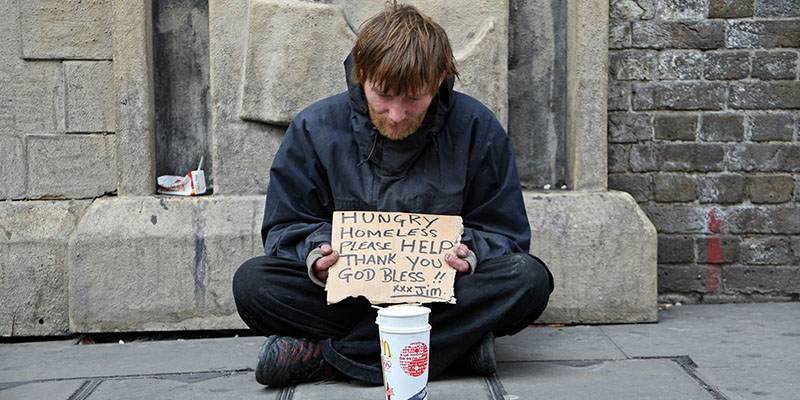 HUNGRY
HOMELESS
PLEASE HELP
THANK YOU
GOD BLESS !!
xxx Jim.